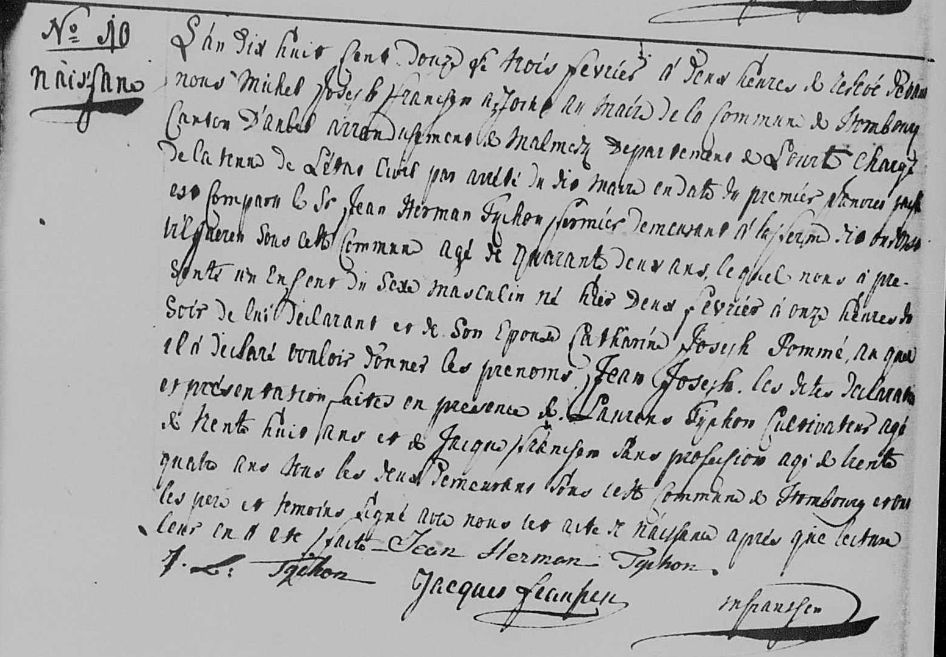 No 10
Naissance
L'an dix huit cent douze le trois fevrier à deux heures de relevé devant
nous Michel Joseph franssen adjoint au maire de la Commune de Hombourg
Canton d'aubel arrondissement de Malmedy Departement de L'ourte chargé
de la tenue de L'état Civil par arrêté du dit maire en date du premier
est comparu le Sr Jean Herman Tychon fermier demeurant à la ferme
sous cette Commune agé de quarante deux ans, lequel nous à pre-
senté un Enfant du Sexe masculin né hier deux fevrier à onze heures du
Soir de lui déclarant et de Son Epouse Catharine Joseph Pommé, au quel
il à declaré vouloir donner les prenoms Jean Joseph. les dites declaration
et présentation faites en presence de Laurens Tychon Cultivateur agé
de trente huit ans et de Jacque franssen sans profession agé de trente
quatre ans tous les deux demeurans sous cette Commune de Hombourg et ont
les pere et temoins signé avec nous cet acte de naissance après que lecture
leur en a été faite - Jean Herman Tychon.
J. L. Tychon Jacques franssen mjfranssen